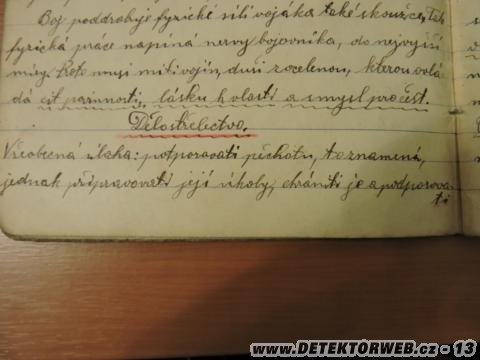 Boj poddrobuje fyzické síli vojáka také zkoužce, Tak
fyzická práce napíná nervy bojovníka, do nejvyší
míry. Proto musí míti vojín, duši zocelenou, kterou ovlá
dá cit povinnosti, lásku k vlasti a smysl pro čest.
Dělostřelectvo.
Všeobecná úloha: potporovati pěchotu, to znamená,
jednak připravovati její úkoly, chrániti je a podporova
ti
www.DETEKTORWEB.cz - 13